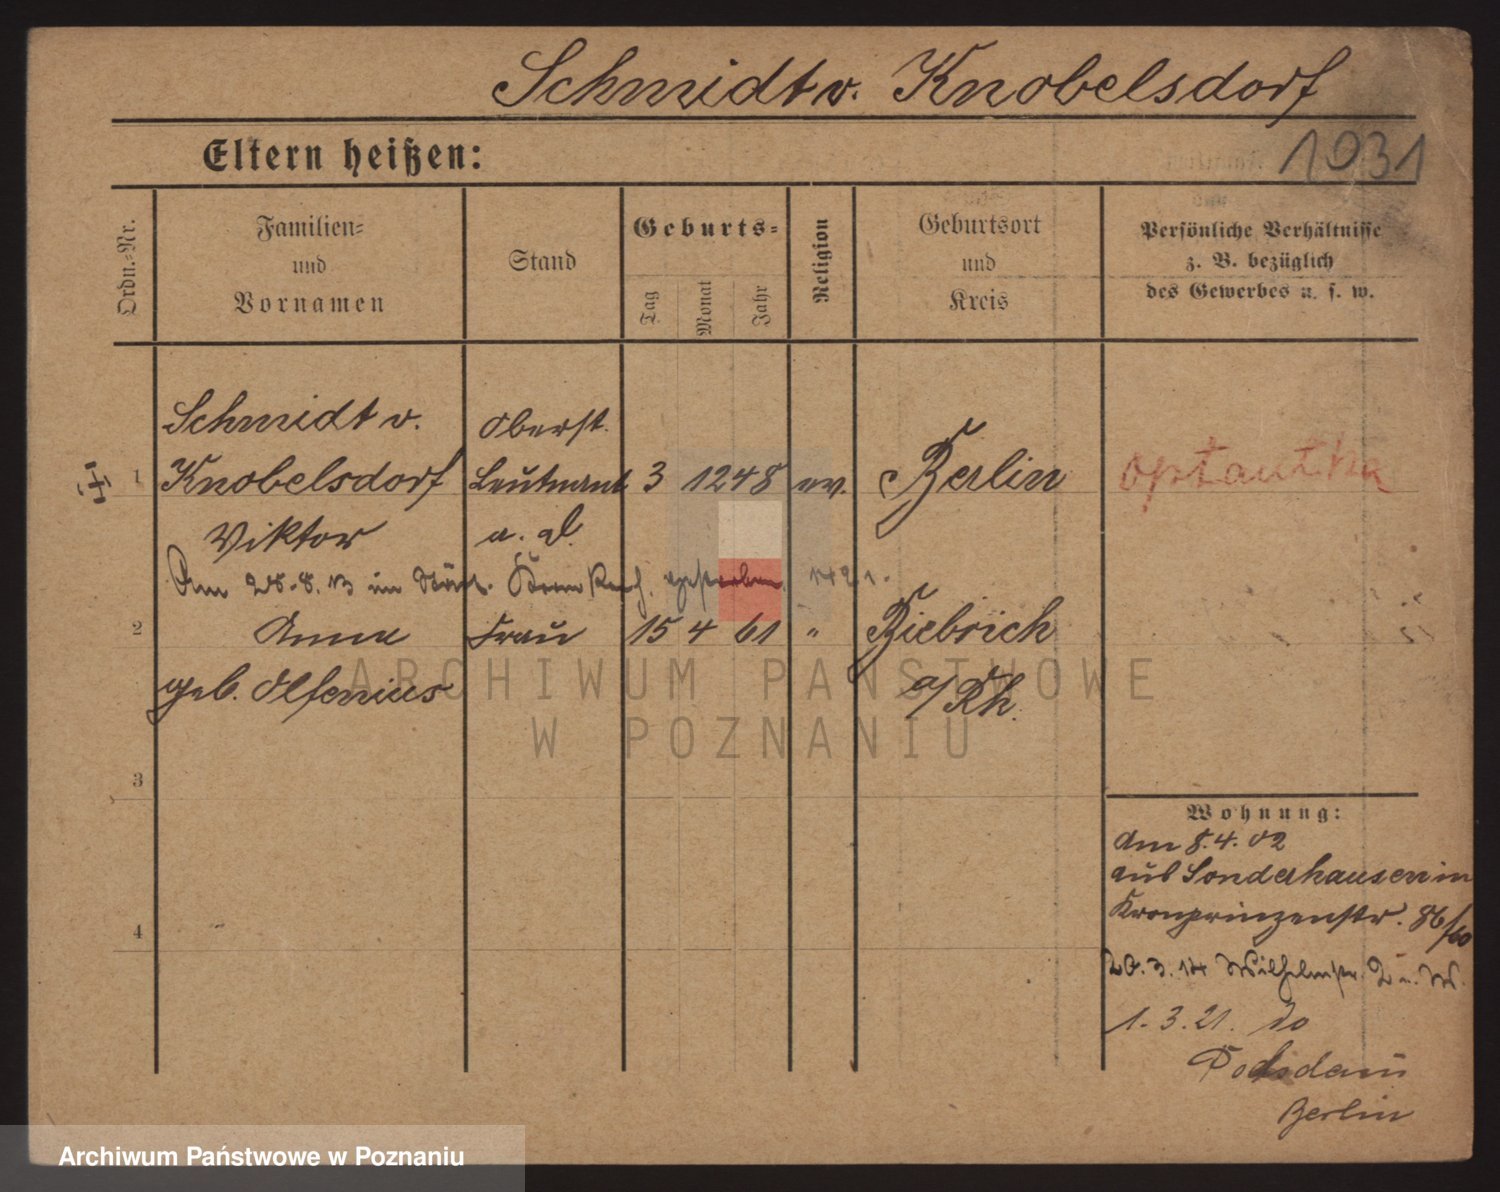 Schmidt v. Knobelsdorf
Eltern heißen:
1031
Ordn.-Nr.
Familien-
und
Vornamen
Stand
Geburts-
Tag
Monat
Jahr
Religion
Geburtsort
und
Kreis
Persönliche Verhältnisse
z. B. bezüglich
des Gewerbes u. s. w.
Schmidt v. Oberst.
1 Knobelsdorf Leutnant 3 12 48 ev. Berlin optantka
Viktor a. D.
Am 28.8.13 im gestorben.
2 Anna Frau 15 4 61 " Biebrich
geb. Olfenius a/Rh.
3
4
Wohnung:
Am 8.4.02
aus Sonderhausen in
Kronprinzenstr. 86/60
20.3.14 Wilhelmstr.
1.3.21. do
Potsdam
Berlin
ARCHIWUM PAŃSTWOWE
W POZNANIU
Archiwum Państwowe w Poznaniu